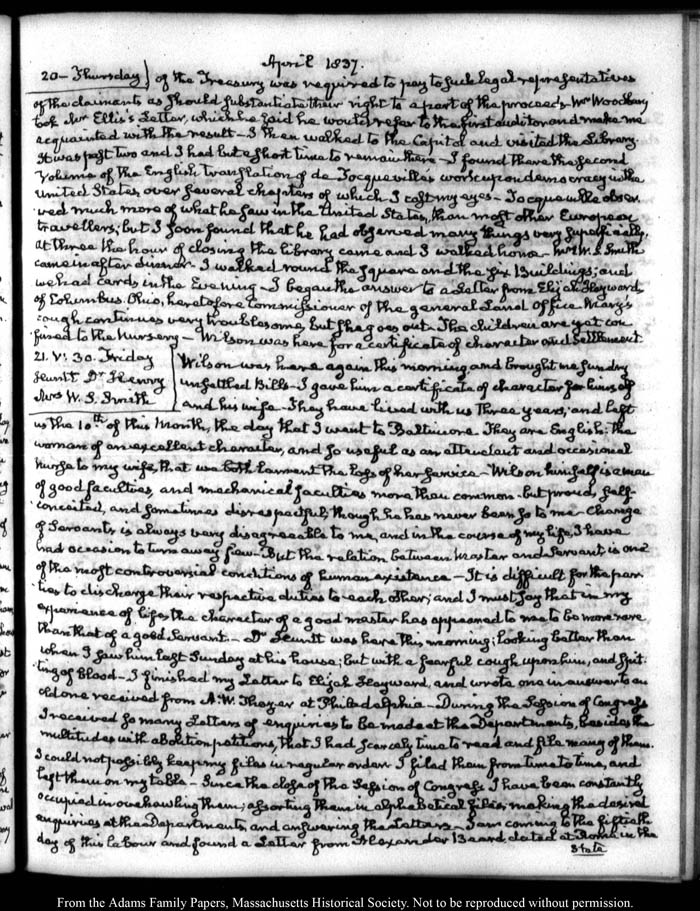 April 1837.
20 – Thursday) of the Treasury was required to pay to such legal representatives
of the claimants as should substantiate their right to a part of the proceeds. Mr Woodbury
took Mr Ellis's Letter, which he said he would refer to the first auditor and make me
acquainted with the result – I then walked to the Capitol and visited the Library.
It was past two and I had but a short time to remain there – I found there the second
volume of the English translation of de Tocqueville's work upon democracy in the
United States, over several chapters of which I cast my eyes – Tocqueville obser-
ved much more of what he saw in the United States, than most other European
travellers; but I soon found that he had observed many things very superficially.
At three the hour of closing the library came and I walked home – Mrs W. S. Smith
came in after dinner. I walked round the Square and the six Buildings; and
we had cards in the Evening – I began the answer to a Letter from Elijah Hayward,
of Columbus. Ohio, heretofore Commissioner of the general Land Office. Mary's
cough continues very troublesome, but she goes out. The children are yet con-
fined to the Nursery – Wilson was here for a certificate of character and settlement.
21. V: 30. Friday
Huntt Dr Henry
Mrs W. S. Smith
Wilson was here again this morning and brought me sundry
unsettled Bills – I gave him a certificate of character for himself
and his wife – They have lived with us three years; and left
us the 10th of this Month, the day that I went to Baltimore. They are English; the
woman of an excellent character, and so useful as an attendant and occasional
nurse to my wife, that we both lament the loss of her service – Wilson himself is a man
of good faculties, and mechanical faculties more than common – but proud, self-
conceited, and sometimes disrespectful; though he has never been so to me – Change
of Servants is always very disagreeable to me, and in the course of my life, I have
had occasion to turn away few – But the relation between Master and Servant is one
of the most controversial conditions of human existence – It is difficult for the par-
ties to discharge their respective duties to each other; and I must say that in my
experience of life, the character of a good master has appeared to me to be more rare
than that of a good Servant – Dr Huntt was here this morning; looking better than
when I saw him last Sunday at his house; but with a fearful cough upon him, and spit-
ting of blood – I finished my Letter to Elijah Hayward, and wrote one in answer to an
old one received from A. W. Thayer at Philadelphia – During the Session of Congress
I received so many Letters of enquiries to be made at the Departments, besides the
multitudes with abolition petitions, that I had scarcely time to read and file many of them.
I could not possibly keep my files in regular order. I filed them from time to time, and
left them on my table – Since the close of the Session of Congress I have been constantly
occupied in overhawling them; assorting them in alphabetical files, making the desired
enquiries at the Departments, and answering the Letters – I am coming to the fiftieth
day of this labour and found a Letter from Alexander Beard dated at Rome in the
State
From the Adams Family Papers, Massachusetts Historical Society. Not to be reproduced without permission.